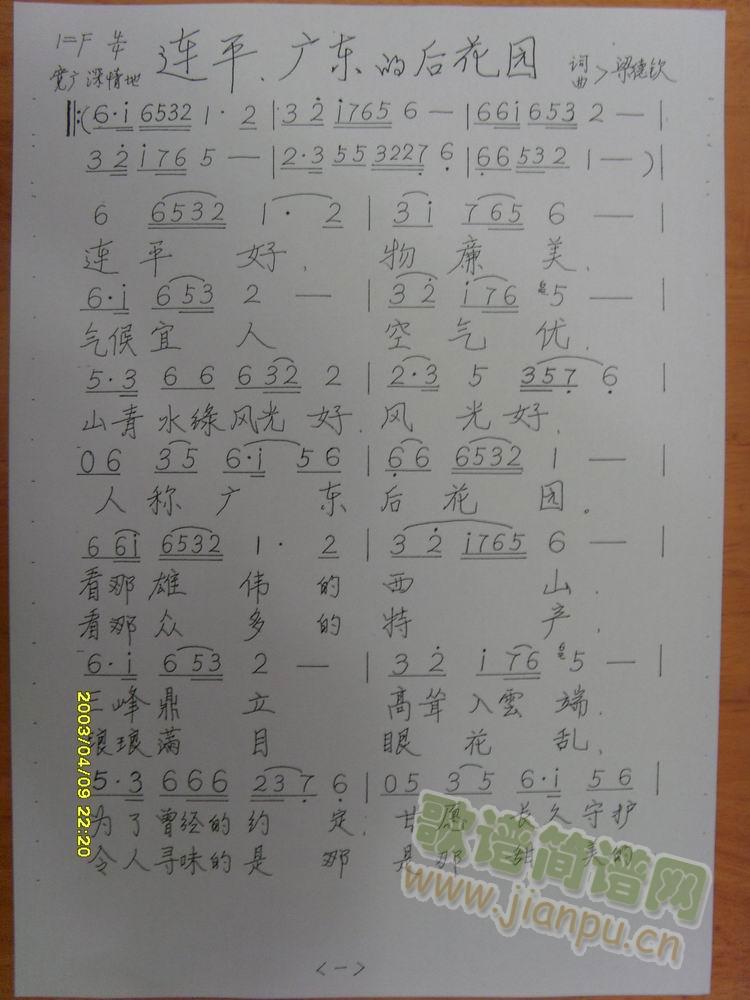 1=F 4/4 连平、广东的后花园 词曲>梁德钦
宽广深情地
‖:(6·i 6532 1·2 | 3 2 i765 6 — | 66i 653 2 — |
3 2 i76 5 — | 2·3 55 3227 6 | 66532 1 — )
6 6532 1·2 | 3i 765 6 — |
连平好，物廉美，
6·i 653 2 — | 3 2 i76 5 — |
气候宜人空气优，
5·3 66 632 2 | 2·3 5 357 6 |
山青水绿风光好，风光好，
06 35 6·i 56 | 66 6532 1 — |
人称广东后花园。
6 6i 6532 1·2 | 3 2 i765 6 — |
看那雄伟的西山，
看那众多的特产，
6·i 653 2 — | 3 2 i76 5 — |
三峰鼎立高耸入雲端，
琅琅满目眼花乱，
5·3 666 237 6 | 05 35 6·i 56 |
为了曾经的约定，甘愿长久守护
令人寻味的是那是那甜美的
<一>
2003/04/09 22:20
歌谱简谱网
www.jianpu.cn